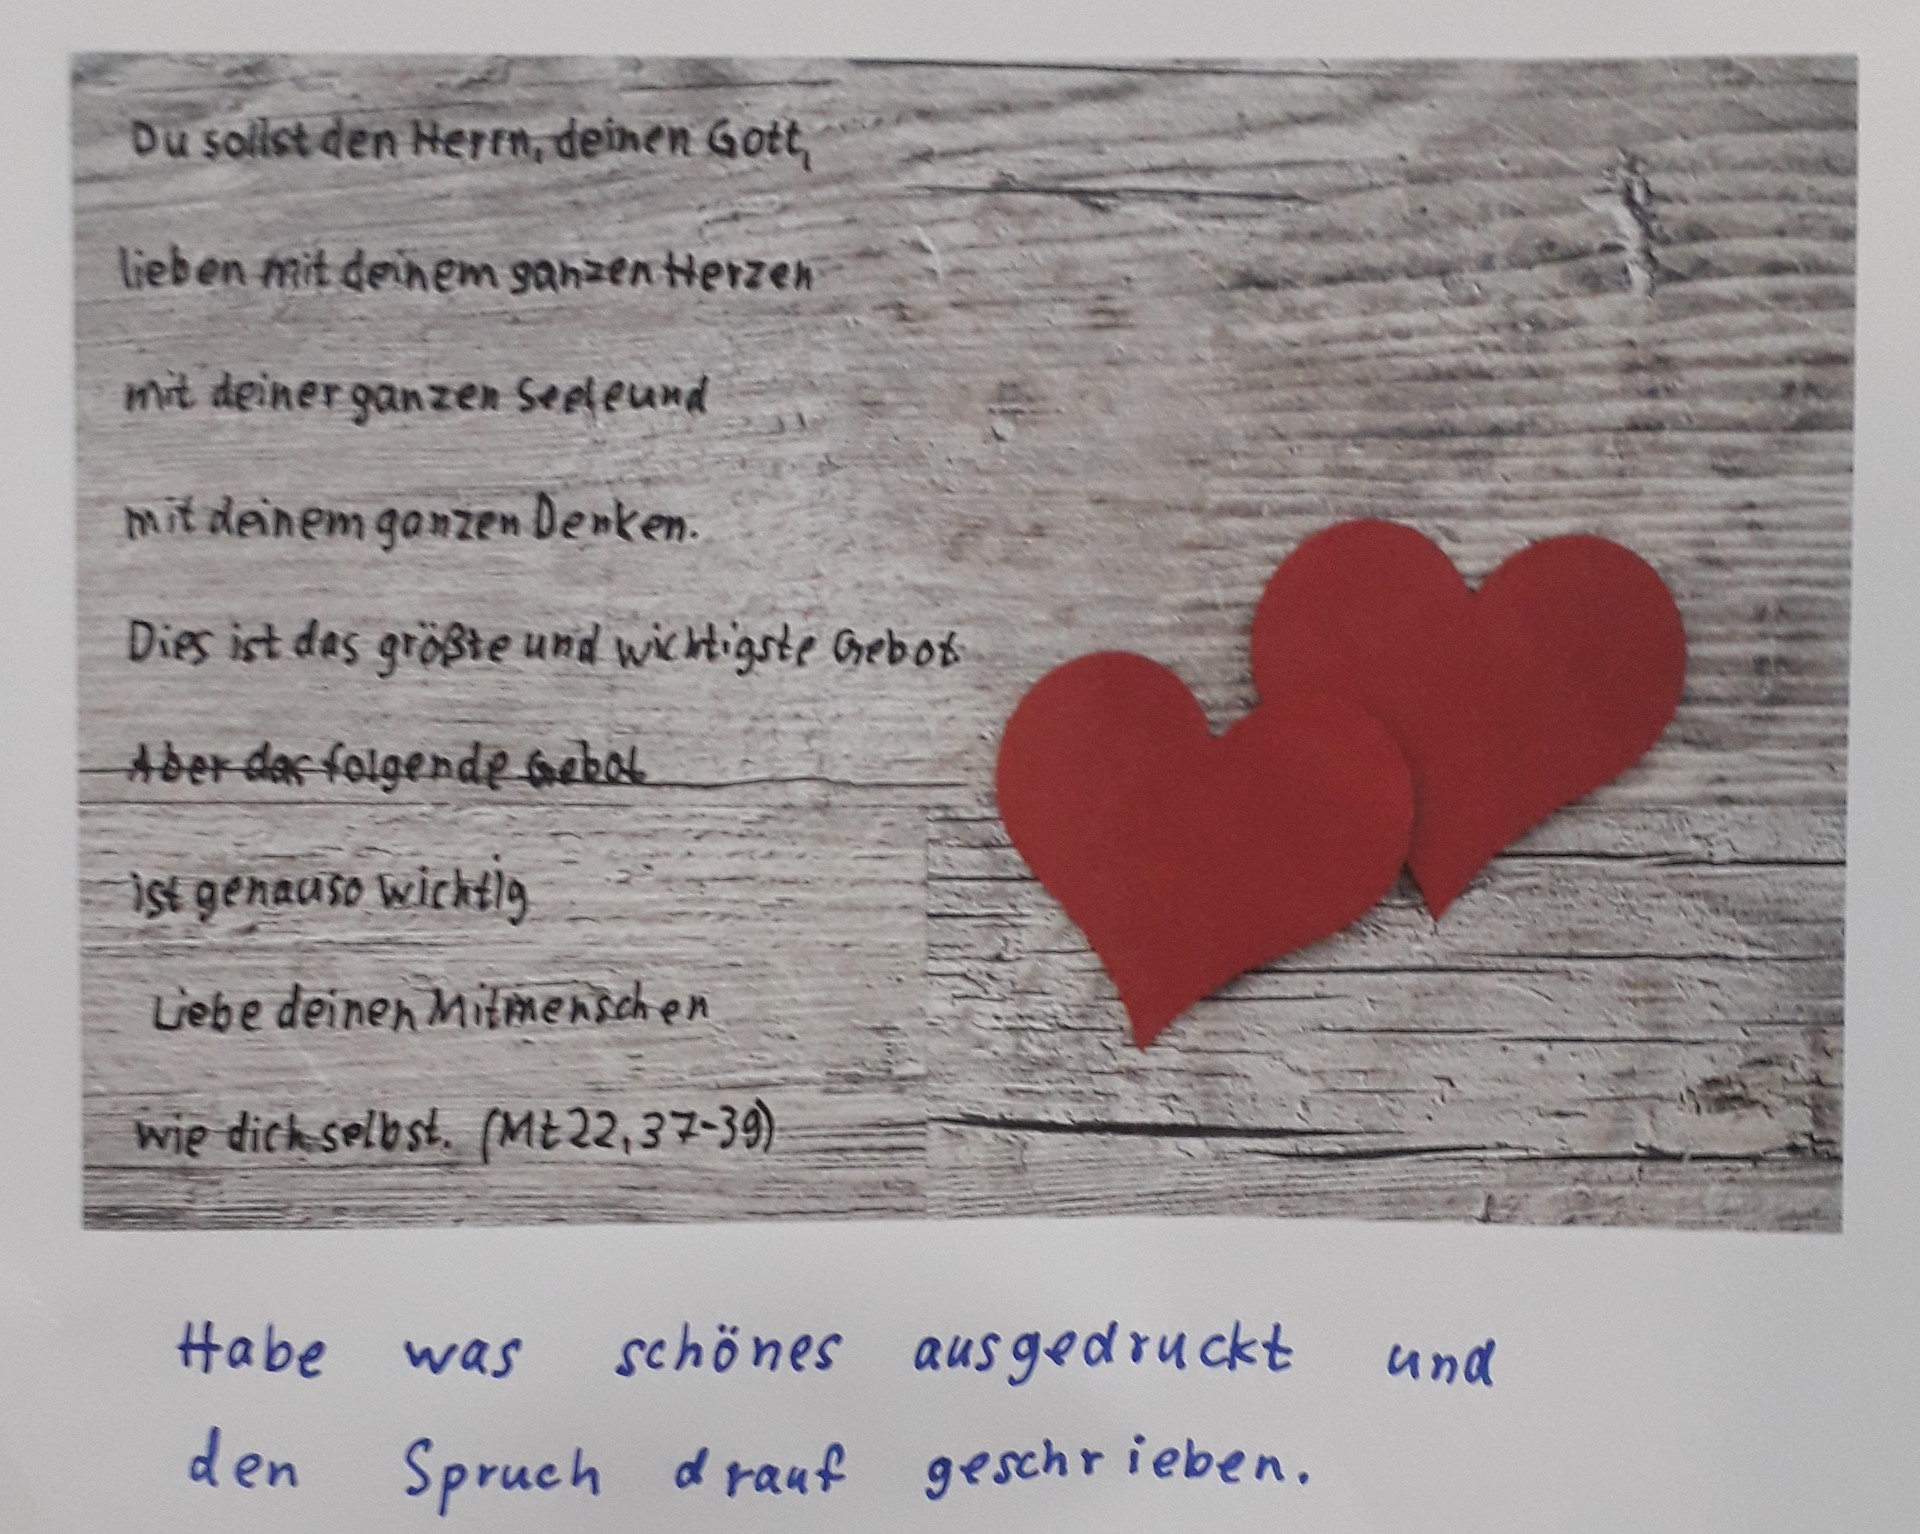 Du sollst den Herrn, deinen Gott,
lieben mit deinem ganzen Herzen
mit deiner ganzen Seele und
mit deinem ganzen Denken.
Dies ist das größte und wichtigste Gebot.
Aber das folgende Gebot
ist genauso wichtig
Liebe deinen Mitmenschen
wie dich selbst. (Mt 22, 37-39)
Habe was schönes ausgedruckt und
den Spruch drauf geschrieben.